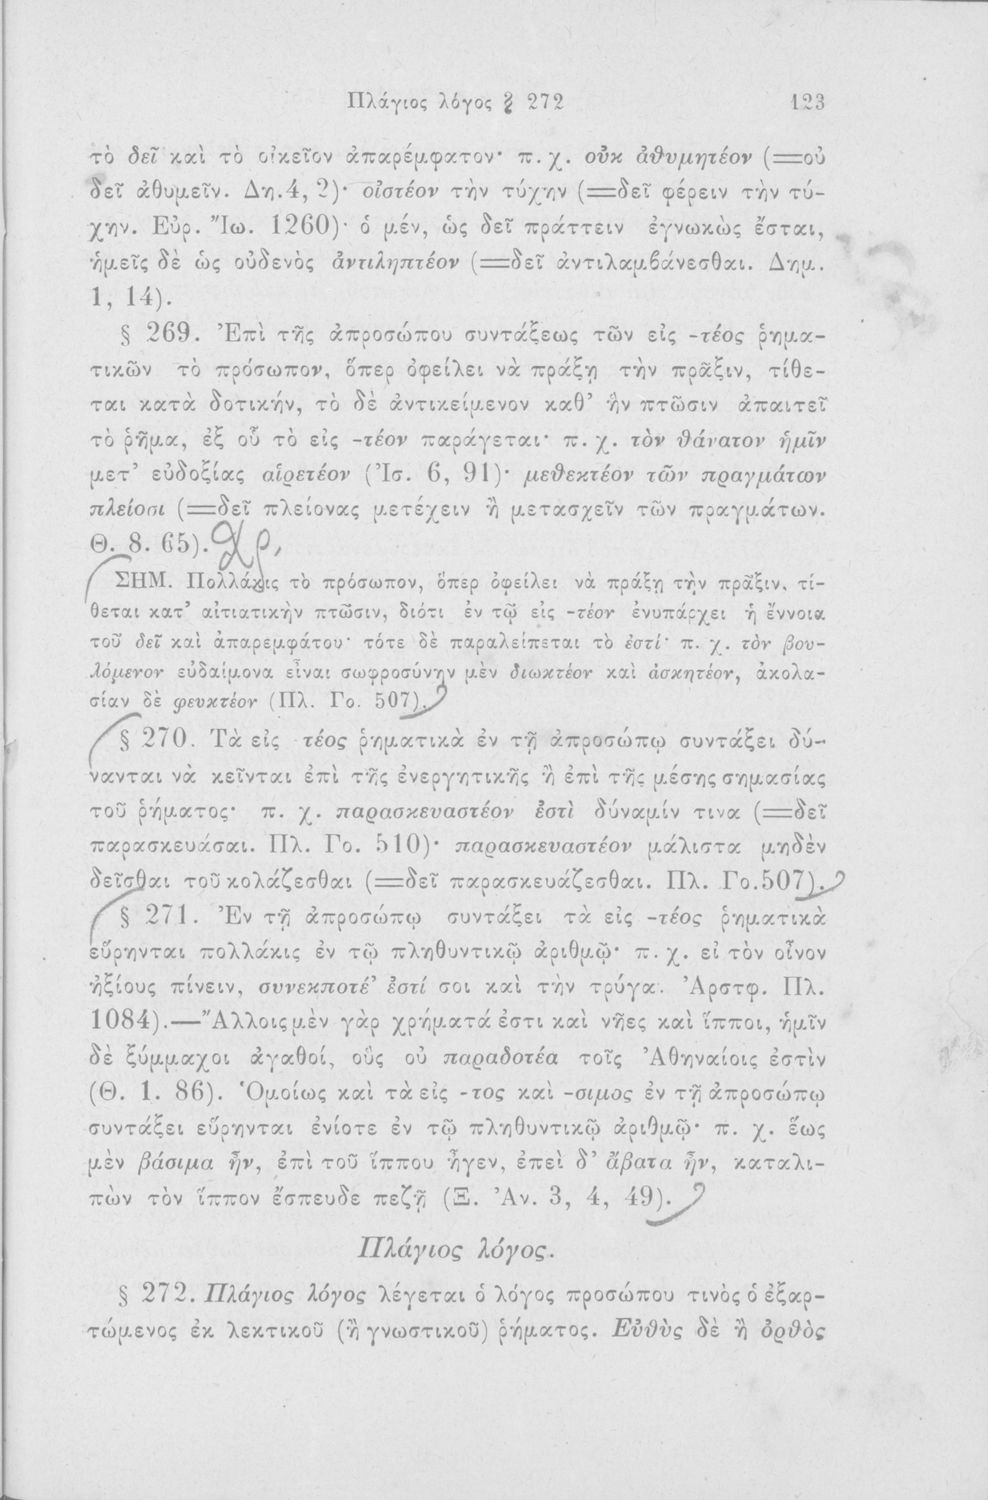 Πλάγιος λόγος § 272 123
τὸ δεῖ καὶ τὸ οἰκεῖον ἀπαρέμφατον· π. χ. οὐκ ἀθυμητέον (=οὐ
δεῖ ἀθυμεῖν. Δη. 4, 2)· οἰστέον τὴν τύχην (=δεῖ φέρειν τὴν τύ-
χην. Εὐρ. Ἴω. 1260)· ὁ μέν, ὡς δεῖ πράττειν ἐγνωκὼς ἔσται,
ἡμεῖς δὲ ὡς οὐδενὸς ἀντιληπτέον (=δεῖ ἀντιλαμβάνεσθαι. Δημ.
1, 14).
§ 269. Ἐπὶ τῆς ἀπροσώπου συντάξεως τῶν εἰς -τέος ῥημα-
τικῶν τὸ πρόσωπον, ὅπερ ὀφείλει νὰ πράξῃ τὴν πρᾶξιν, τίθε-
ται κατὰ δοτικήν, τὸ δὲ ἀντικείμενον καθ’ ἣν πτῶσιν ἀπαιτεῖ
τὸ ῥῆμα, ἐξ οὗ τὸ εἰς -τέον παράγεται· π. χ. τὸν θάνατον ἡμῖν
μετ’ εὐδοξίας αἱρετέον (Ἰσ. 6, 91)· μεθεκτέον τῶν πραγμάτων
πλείοσι (=δεῖ πλείονας μετέχειν ἢ μετασχεῖν τῶν πραγμάτων.
Θ. 8. 65).
ΣΗΜ. Πολλάκις τὸ πρόσωπον, ὅπερ ὀφείλει νὰ πράξῃ τὴν πρᾶξιν, τί-
θεται κατ’ αἰτιατικὴν πτῶσιν, διότι ἐν τῷ εἰς -τέον ἐνυπάρχει ἡ ἔννοια
τοῦ δεῖ καὶ ἀπαρεμφάτου· τότε δὲ παραλείπεται τὸ ἐστί· π. χ. τὸν βου-
λόμενον εὐδαίμονα εἶναι σωφροσύνην μὲν διωκτέον καὶ ἀσκητέον, ἀκολα-
σίαν δὲ φευκτέον (Πλ. Γο. 507).
§ 270. Τὰ εἰς -τέος ῥηματικὰ ἐν τῇ ἀπροσώπῳ συντάξει δύ-
νανται νὰ κεῖνται ἐπὶ τῆς ἐνεργητικῆς ἢ ἐπὶ τῆς μέσης σημασίας
τοῦ ῥήματος· π. χ. παρασκευαστέον ἐστὶ δύναμίν τινα (=δεῖ
παρασκευάσαι. Πλ. Γο. 510)· παρασκευαστέον μάλιστα μηδὲν
δεῖσθαι τοῦ κολάζεσθαι (=δεῖ παρασκευάζεσθαι. Πλ. Γο. 507).
§ 271. Ἐν τῇ ἀπροσώπῳ συντάξει τὰ εἰς -τέος ῥηματικὰ
εὕρηνται πολλάκις ἐν τῷ πληθυντικῷ ἀριθμῷ· π. χ. εἰ τὸν οἶνον
ἠξίους πίνειν, συνεκποτέ’ ἐστί σοι καὶ τὴν τρύγα. Ἀρστφ. Πλ.
1084).—Ἄλλοις μὲν γὰρ χρήματά ἐστι καὶ νῆες καὶ ἵπποι, ἡμῖν
δὲ ξύμμαχοι ἀγαθοί, οὓς οὐ παραδοτέα τοῖς Ἀθηναίοις ἐστὶν
(Θ. 1. 86). Ὁμοίως καὶ τὰ εἰς -τος καὶ -σιμος ἐν τῇ ἀπροσώπῳ
συντάξει εὕρηνται ἐνίοτε ἐν τῷ πληθυντικῷ ἀριθμῷ· π. χ. ἕως
μὲν βάσιμα ἦν, ἐπὶ τοῦ ἵππου ἦγεν, ἐπεὶ δ’ ἄβατα ἦν, καταλι-
πὼν τὸν ἵππον ἔσπευδε πεζῇ (Ξ. Ἀν. 3, 4, 49).
Πλάγιος λόγος.
§ 272. Πλάγιος λόγος λέγεται ὁ λόγος προσώπου τινὸς ὁ ἐξαρ-
τώμενος ἐκ λεκτικοῦ (ἢ γνωστικοῦ) ῥήματος. Εὐθὺς δὲ ἢ ὀρθὸς